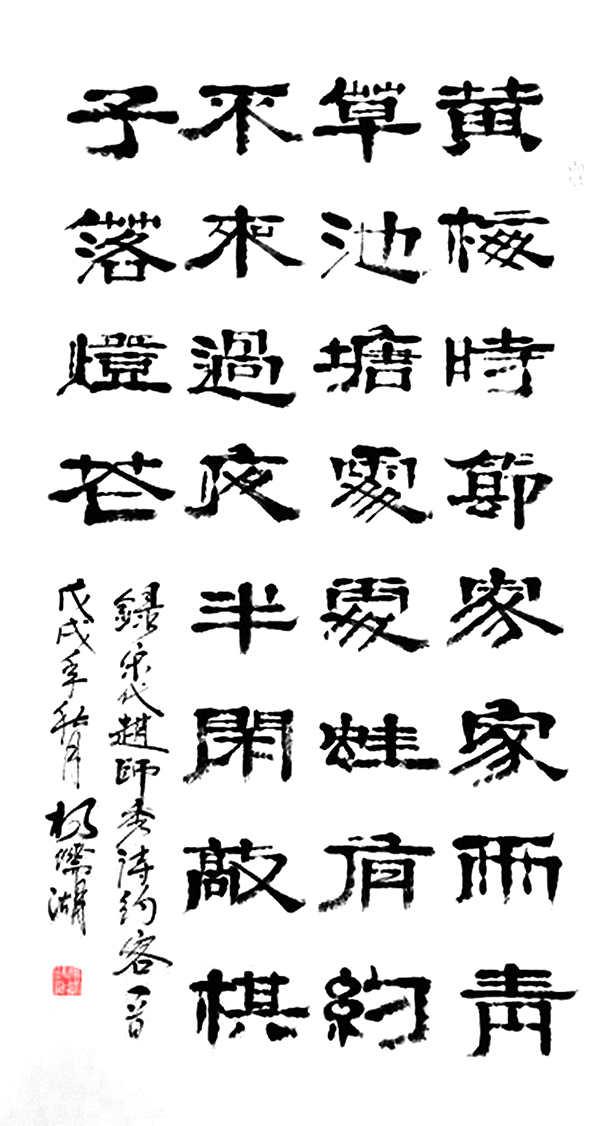 黄梅時節家家雨青
草池塘處處蛙有約
不來過夜半閑敲棋
子落燈花
錄宋代趙師秀詩約客一首
戊戌年秋月楊儒湖